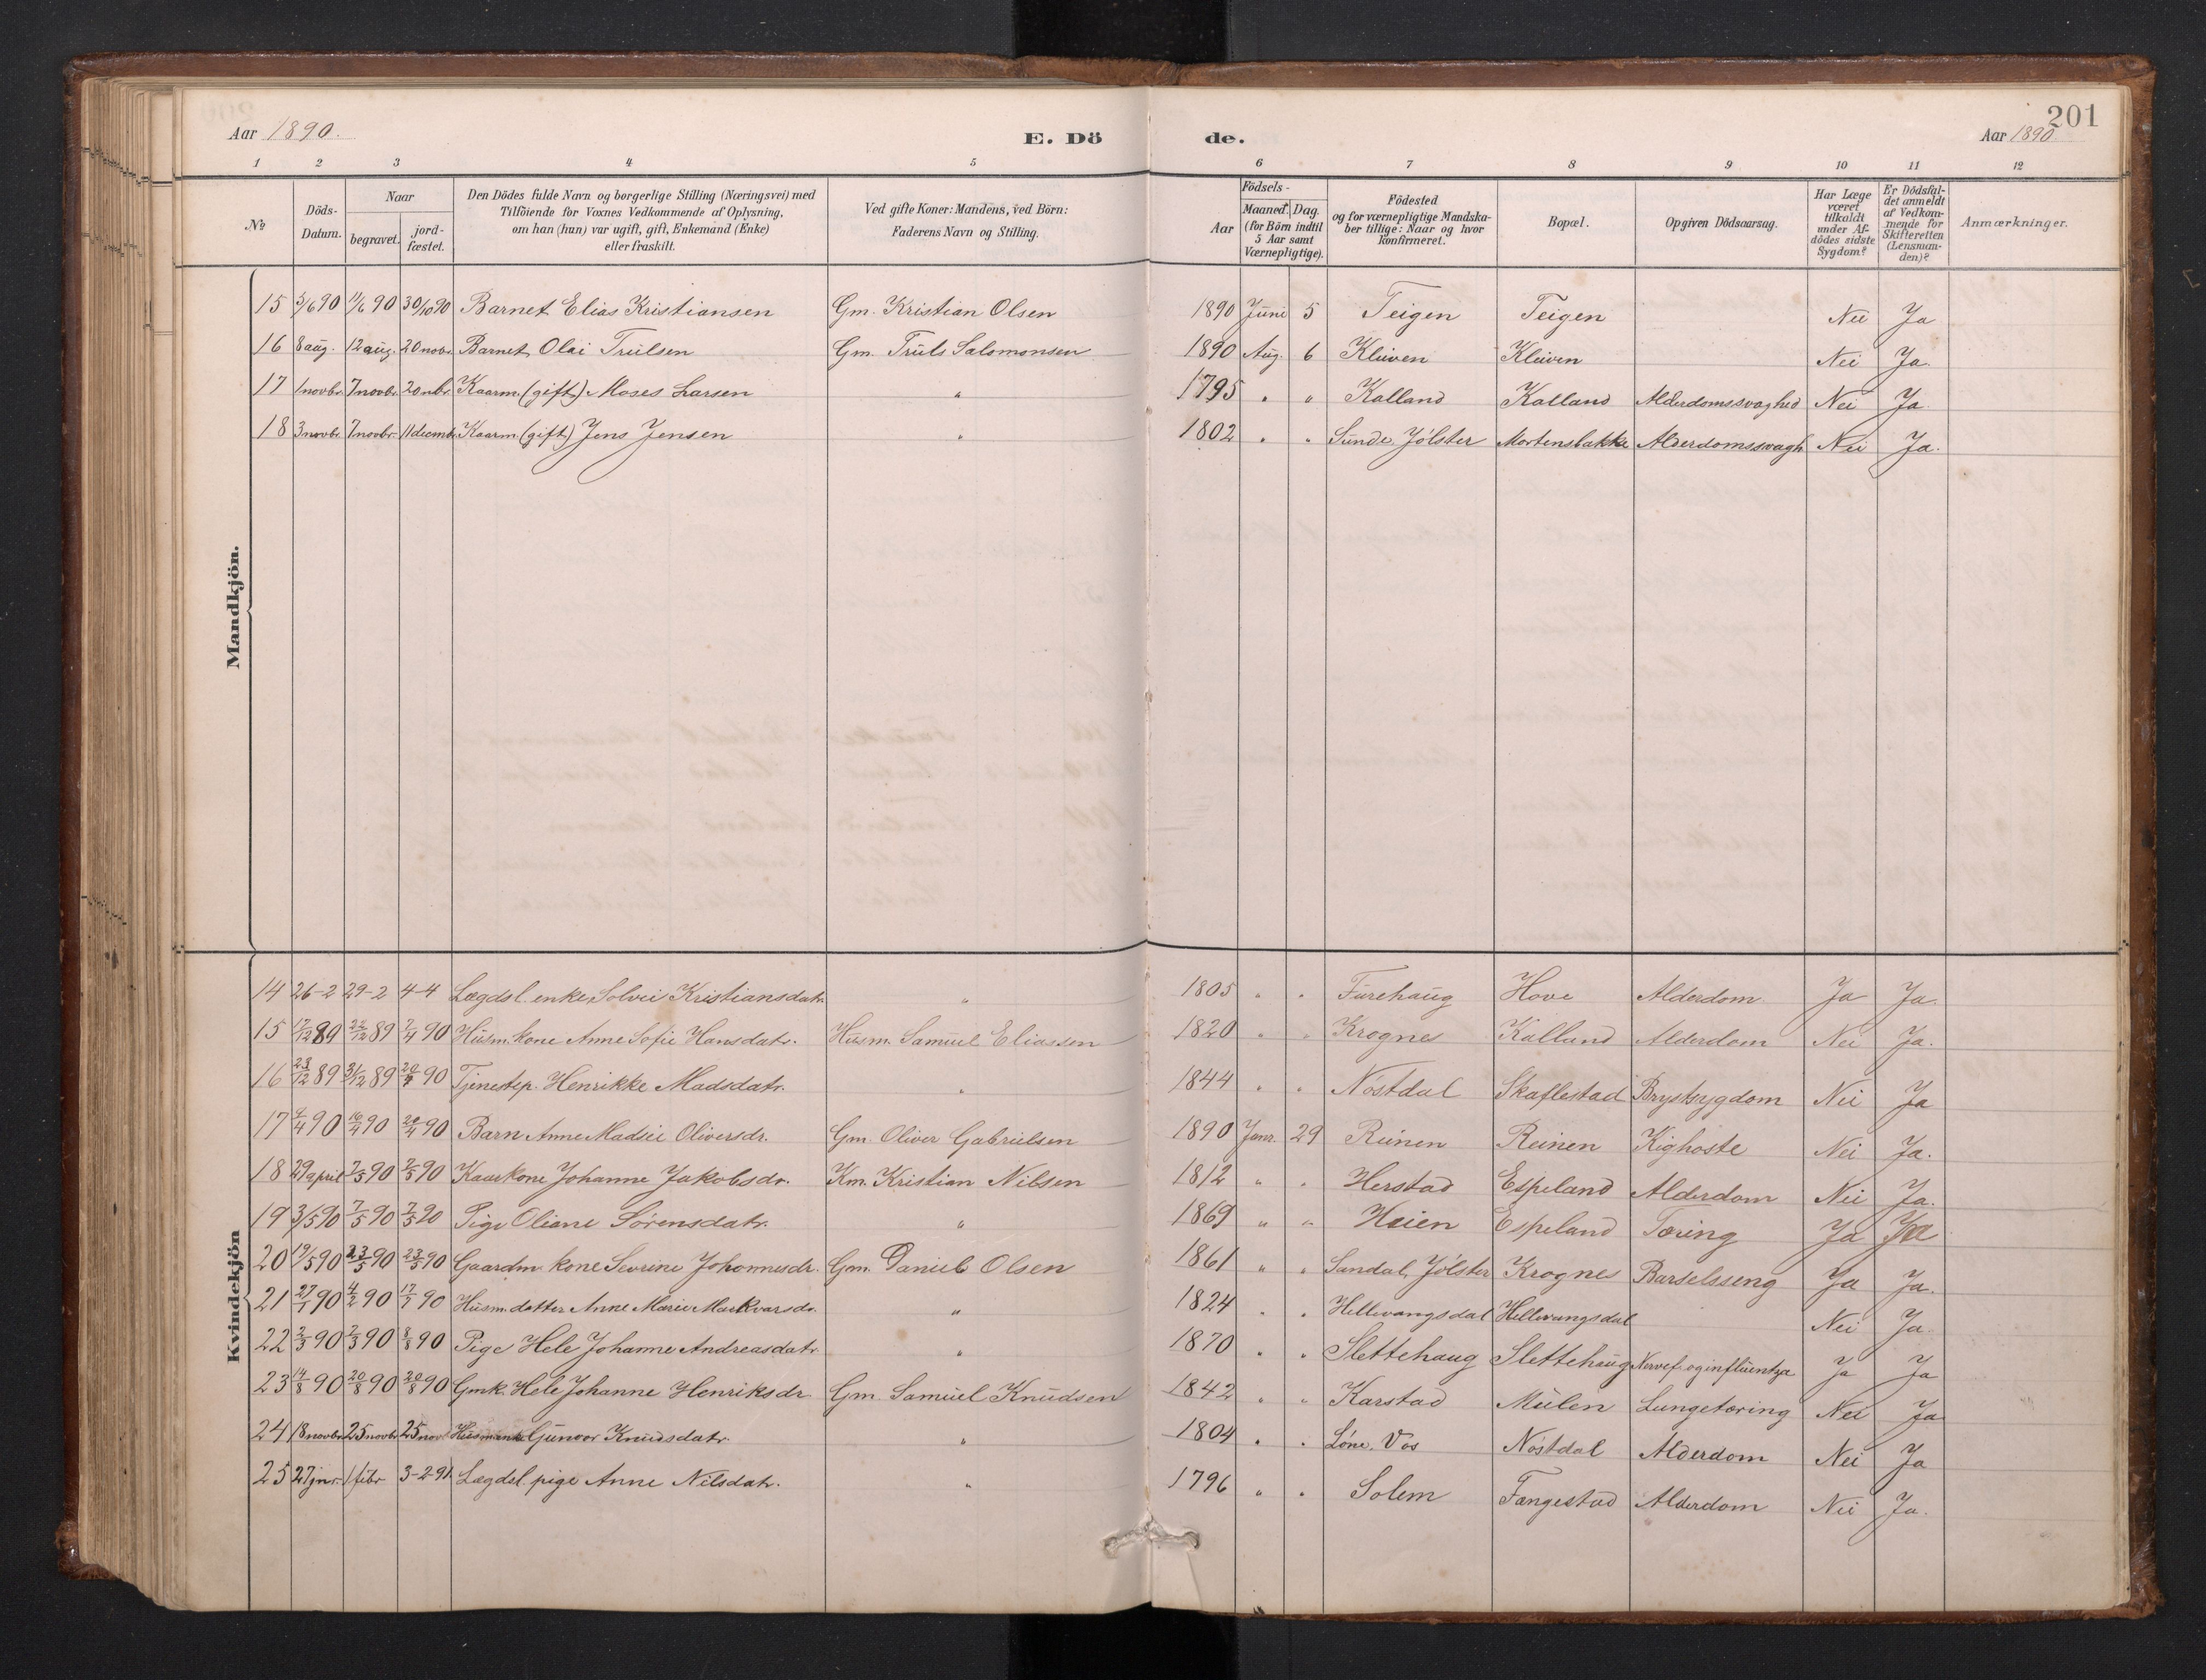 201
Aar 1890.
E. Dö
de.
Aar 1890
1 2 3 4 5 6 7 8 9 10 11 12
№
Döds-Datum.
Naar
begravet.
jord-fæstet.
Den Dödes fulde Navn og borgerlige Stilling (Næringsvei) med
Tilföiende for Voxnes Vedkommende af Oplysning,
om han (hun) var ugift, gift, Enkemand (Enke)
eller fraskilt.
Ved gifte Koner: Mandens, ved Börn:
Faderens Navn og Stilling.
Födsels-
Aar
Maaned. Dag.
(for Börn indtil
5 Aar samt
Værnepligtige).
Födested
og for værnepligtige Mandska-
ber tillige: Naar og hvor
konfirmeret.
Bopæl.
Opgiven Dödsaarsag.
Har Læge
været
tilkaldt
under Af-
dödes sidste
Sygdom?
Er Dödsfal-
det anmeldt
af Vedkom-
mende for
Skifteretten
(Lensman-
den)?
Anmærkninger.
Mandkjön.
15 5/6 90 11/6 90 30/10 90 Barnet Elias Kristiansen Gm. Kristian Olsen 1890 Juni 5 Teigen Teigen Nei Ja
16 8 aug. 12 aug. 20 novbr. Barnet Olai Trulsen Gm. Truls Salomonsen 1890 Aug. 6 Kleiven Kleiven Nei Ja.
17 1 novbr. 7 novbr. 20 nbr. Kaarm. (gift) Moses Larsen " 1795 " " Kalland Kalland Alderdomssvaghed Nei Ja.
18 3 novbr. 7 novbr. 11 decembr. Kaarm. (gift) Jens Jensen " 1802 " " Sunde, Jölster Mortensbakke Alderdomssvagh. Nei Ja.
Kvindekjön
14 26-2 29-2 4-4 Lægdsl. enke, Solvei Kristiansdatr. " 1805 " " Furehaug Hove Alderdom Ja Ja.
15 17/12 89 24/12 89 7/4 90 Husm. kone Anne Sofie Hansdatr. Husm. Samuel Eliassen 1820 " " Krognes Kalland Alderdom Nei Ja.
16 23/12 89 31/12 89 20/4 90 Tjenestep. Henrikke Madsdatr. " 1844 " " Nöstdal Skaflestad Brystsygdom Nei Ja
17 9/4 90 16/4 90 20/4 90 Barn Anne Madsie Oliversdr. Gm. Oliver Gabrielsen 1890 Janr. 29 Reinen Reinen Kighoste Nei Ja.
18 29 april 7/5 90 7/5 90 Kaarkone Johanne Jakobsdr. Km. Kristian Nilsen 1812 " " Herstad Espeland Alderdom Nei Ja.
19 3/5 90 7/5 90 7/5 90 Pige Oliane Sörensdatr. " 1869 " " Heien Espeland Tæring Ja Ja
20 19/5 90 23/5 90 23/5 90 Gaardm. kone Severine Johannesdr. Gm. Daniel Olsen 1861 " " Sandal, Jölster Krognes Barselsseng Ja Ja.
21 27/1 90 4/2 90 17/7 90 Husm. datter Anne Marie Markvarsdr. " 1824 " " Hellevangsdal Hellevangsdal Nei Ja.
22 2/3 90 7/3 90 8/8 90 Pige Hele Johanne Andreasdatr. " 1870 " " Slettehaug Slettehaug Nervef. og influentza Ja Ja
23 14/8 90 20/8 90 20/8 90 Gmk. Hele Johanne Henriksdr. Gm. Samuel Knudsen 1842 " " Karstad Mulen Lungetæring Nei Ja
24 18 novbr. 25 novbr. 25 nov. Gunvor Knudsdatr. " 1804 " " Löne, Vos Nöstdal Alderdom Nei Ja
25 27 jnr. 1 febr. 3-2-91. Lægdsl. pige Anne Nilsdatr. " 1796 " " Solem Fangestad Alderdom Nei Ja.